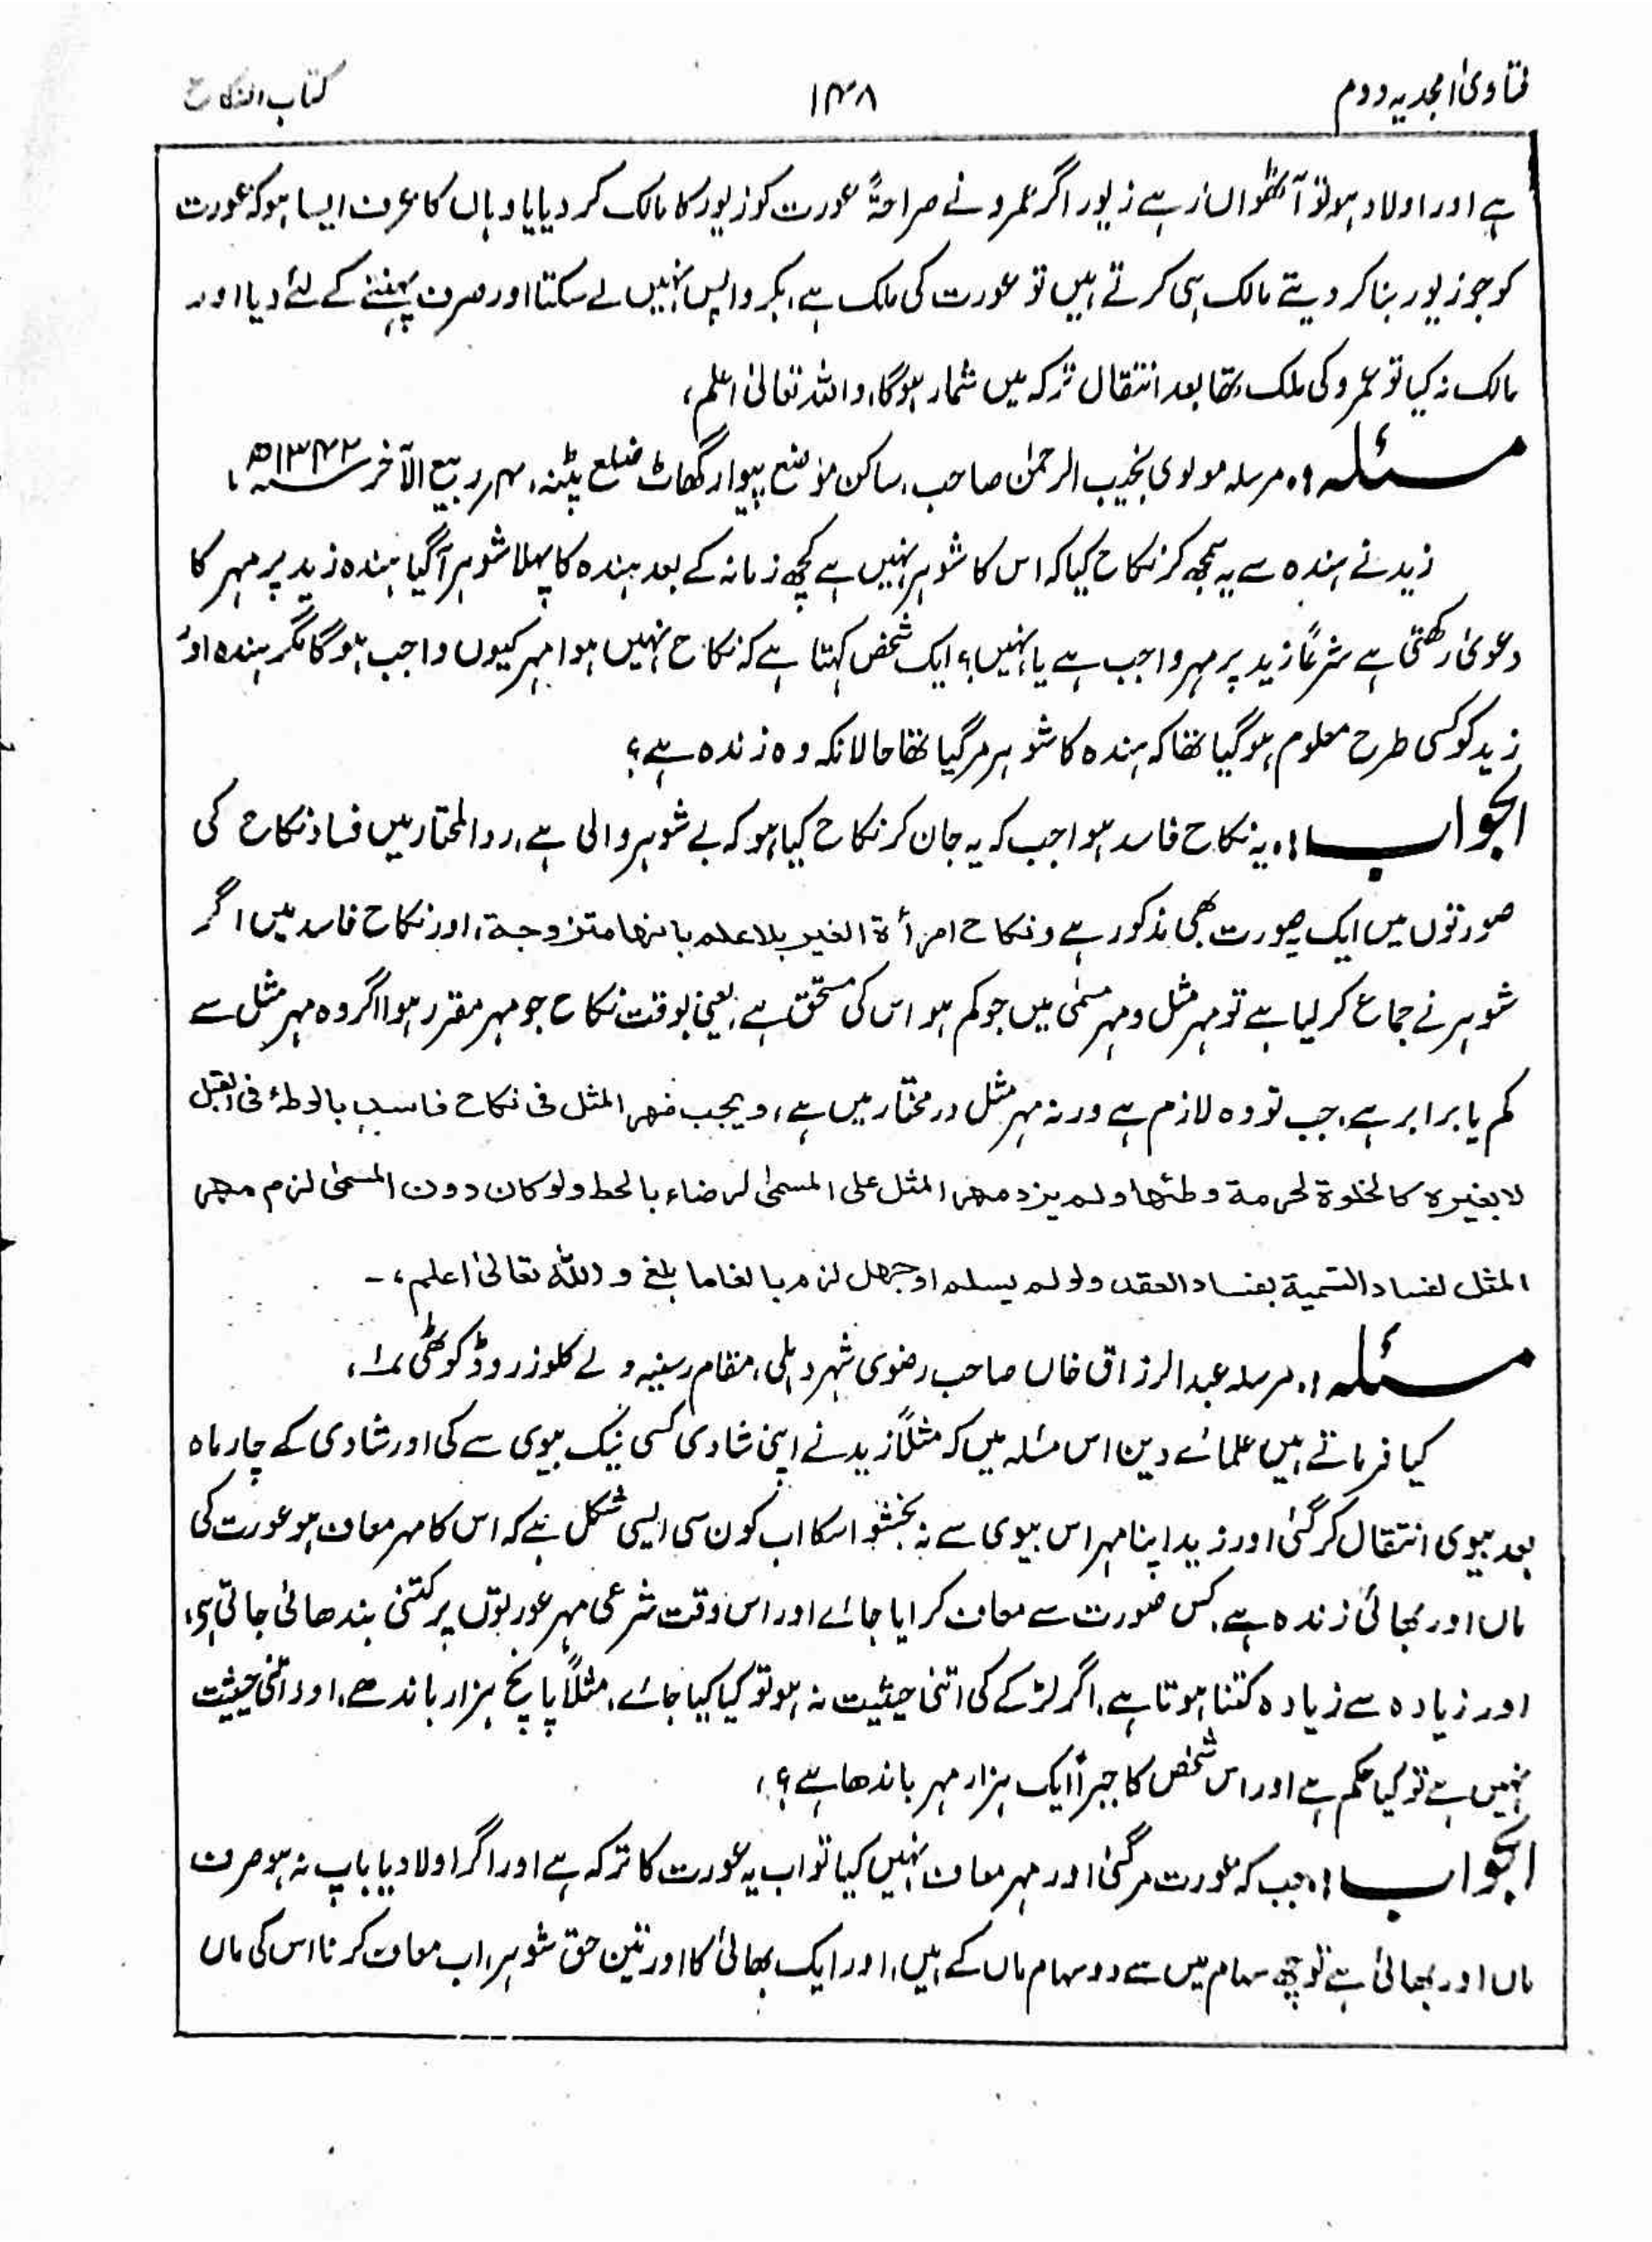 فتاویٰ امجدیہ دوم
۱۴۸
کتاب النکاح
ہے اور اولاد ہو تو آٹھواں رہے زیور اگر عمرو نے صراحۃً عورت کو زیور کا مالک کر دیا یا وہاں کا عرف ایسا ہو کہ عورت
کو جو زیور بنا کر دیتے مالک ہی کرتے ہیں تو عورت کی ملک ہے، بکر واپس نہیں لے سکتا اور صرف پہننے کے لئے دیا اور
مالک نہ کیا تو عمرو کی ملک تھا بعد انتقال ترکہ میں شمار ہوگا، واللہ تعالیٰ اعلم،
مسئلہ :۔ مرسلہ مولوی نجیب الرحمٰن صاحب، ساکن موضع پیوار گھاٹ ضلع پٹنہ، ۴؍ ربیع الآخر ۱۳۴۲ھ،
زید نے ہندہ سے یہ سمجھ کر نکاح کیا کہ اس کا شوہر نہیں ہے کچھ زمانہ کے بعد ہندہ کا پہلا شوہر آگیا ہندہ زید پر مہر کا
دعویٰ رکھتی ہے شرعاً زید پر مہر واجب ہے یا نہیں؟ ایک شخص کہتا ہے کہ نکاح نہیں ہوا مہر کیوں واجب ہوگا مگر ہندہ اور
زید کو کسی طرح معلوم ہوگیا تھا کہ ہندہ کا شوہر مرگیا تھا حالانکہ وہ زندہ ہے؟
الجواب :۔ یہ نکاح فاسد ہوا جب کہ یہ جان کر نکاح کیا ہو کہ بے شوہر والی ہے، ردالمحتار میں فساد نکاح کی
صورتوں میں ایک صورت بھی مذکور ہے ونکاح امرأۃ الغیر بلا علم بانہا متزوجۃ، اور نکاح فاسد میں اگر
شوہر نے جماع کرلیا ہے تو مہر مثل و مہر مسمیٰ میں جو کم ہو اس کی مستحق ہے، یعنی بوقت نکاح جو مہر مقرر ہوا اگر وہ مہر مثل سے
کم یا برابر ہے، جب تو وہ لازم ہے ورنہ مہر مثل درمختار میں ہے، ویجب مہر المثل فی نکاح فاسد بالوطء فی القبل
لا بغیرہ کالخلوۃ لحرمۃ وطئہا ولم یزد مہر المثل علی المسمیٰ لرضاء بالحط ولو کان دون المسمیٰ لزم مہر
المثل لفساد التسمیۃ بفساد العقد ولو لم یسلم او جھل لزم بالغا ما بلغ واللہ تعالیٰ اعلم،۔
مسئلہ :۔ مرسلہ عبدالرزاق خاں صاحب رضوی شہر دہلی، مقام رسینہ ولے کلوز روڈ کوٹھی ۱،
کیا فرماتے ہیں علمائے دین اس مسئلہ میں کہ مثلاً زید نے اپنی شادی کسی نیک بیوی سے کی اور شادی کے چار ماہ
بعد بیوی انتقال کرگئی اور زید اپنا مہر اس بیوی سے نہ بخشوا سکا اب کون سی ایسی شکل ہے کہ اس کا مہر معاف ہو عورت کی
ماں اور بھائی زندہ ہے، کس صورت سے معاف کرایا جائے اور اس وقت شرعی مہر عورتوں پر کتنی بندھائی جاتی ہی،
اور زیادہ سے زیادہ کتنا ہوتا ہے، اگر لڑکے کی اتنی حیثیت نہ ہو تو کیا کیا جائے، مثلاً پانچ ہزار باندھے، اور اتنی حیثیت
نہیں ہے تو کیا حکم ہے اور اس شخص کا جبراً ایک ہزار مہر باندھا ہے؟،
الجواب :۔ جب کہ عورت مرگئی اور مہر معاف نہیں کیا تو اب یہ عورت کا ترکہ ہے اور اگر اولاد یا باپ نہ ہو صرف
ماں اور بھائی ہے تو چھ سہام میں سے دو سہام ماں کے ہیں، اور ایک بھائی کا اور تین حق شوہر، اب معاف کرنا اس کی ماں